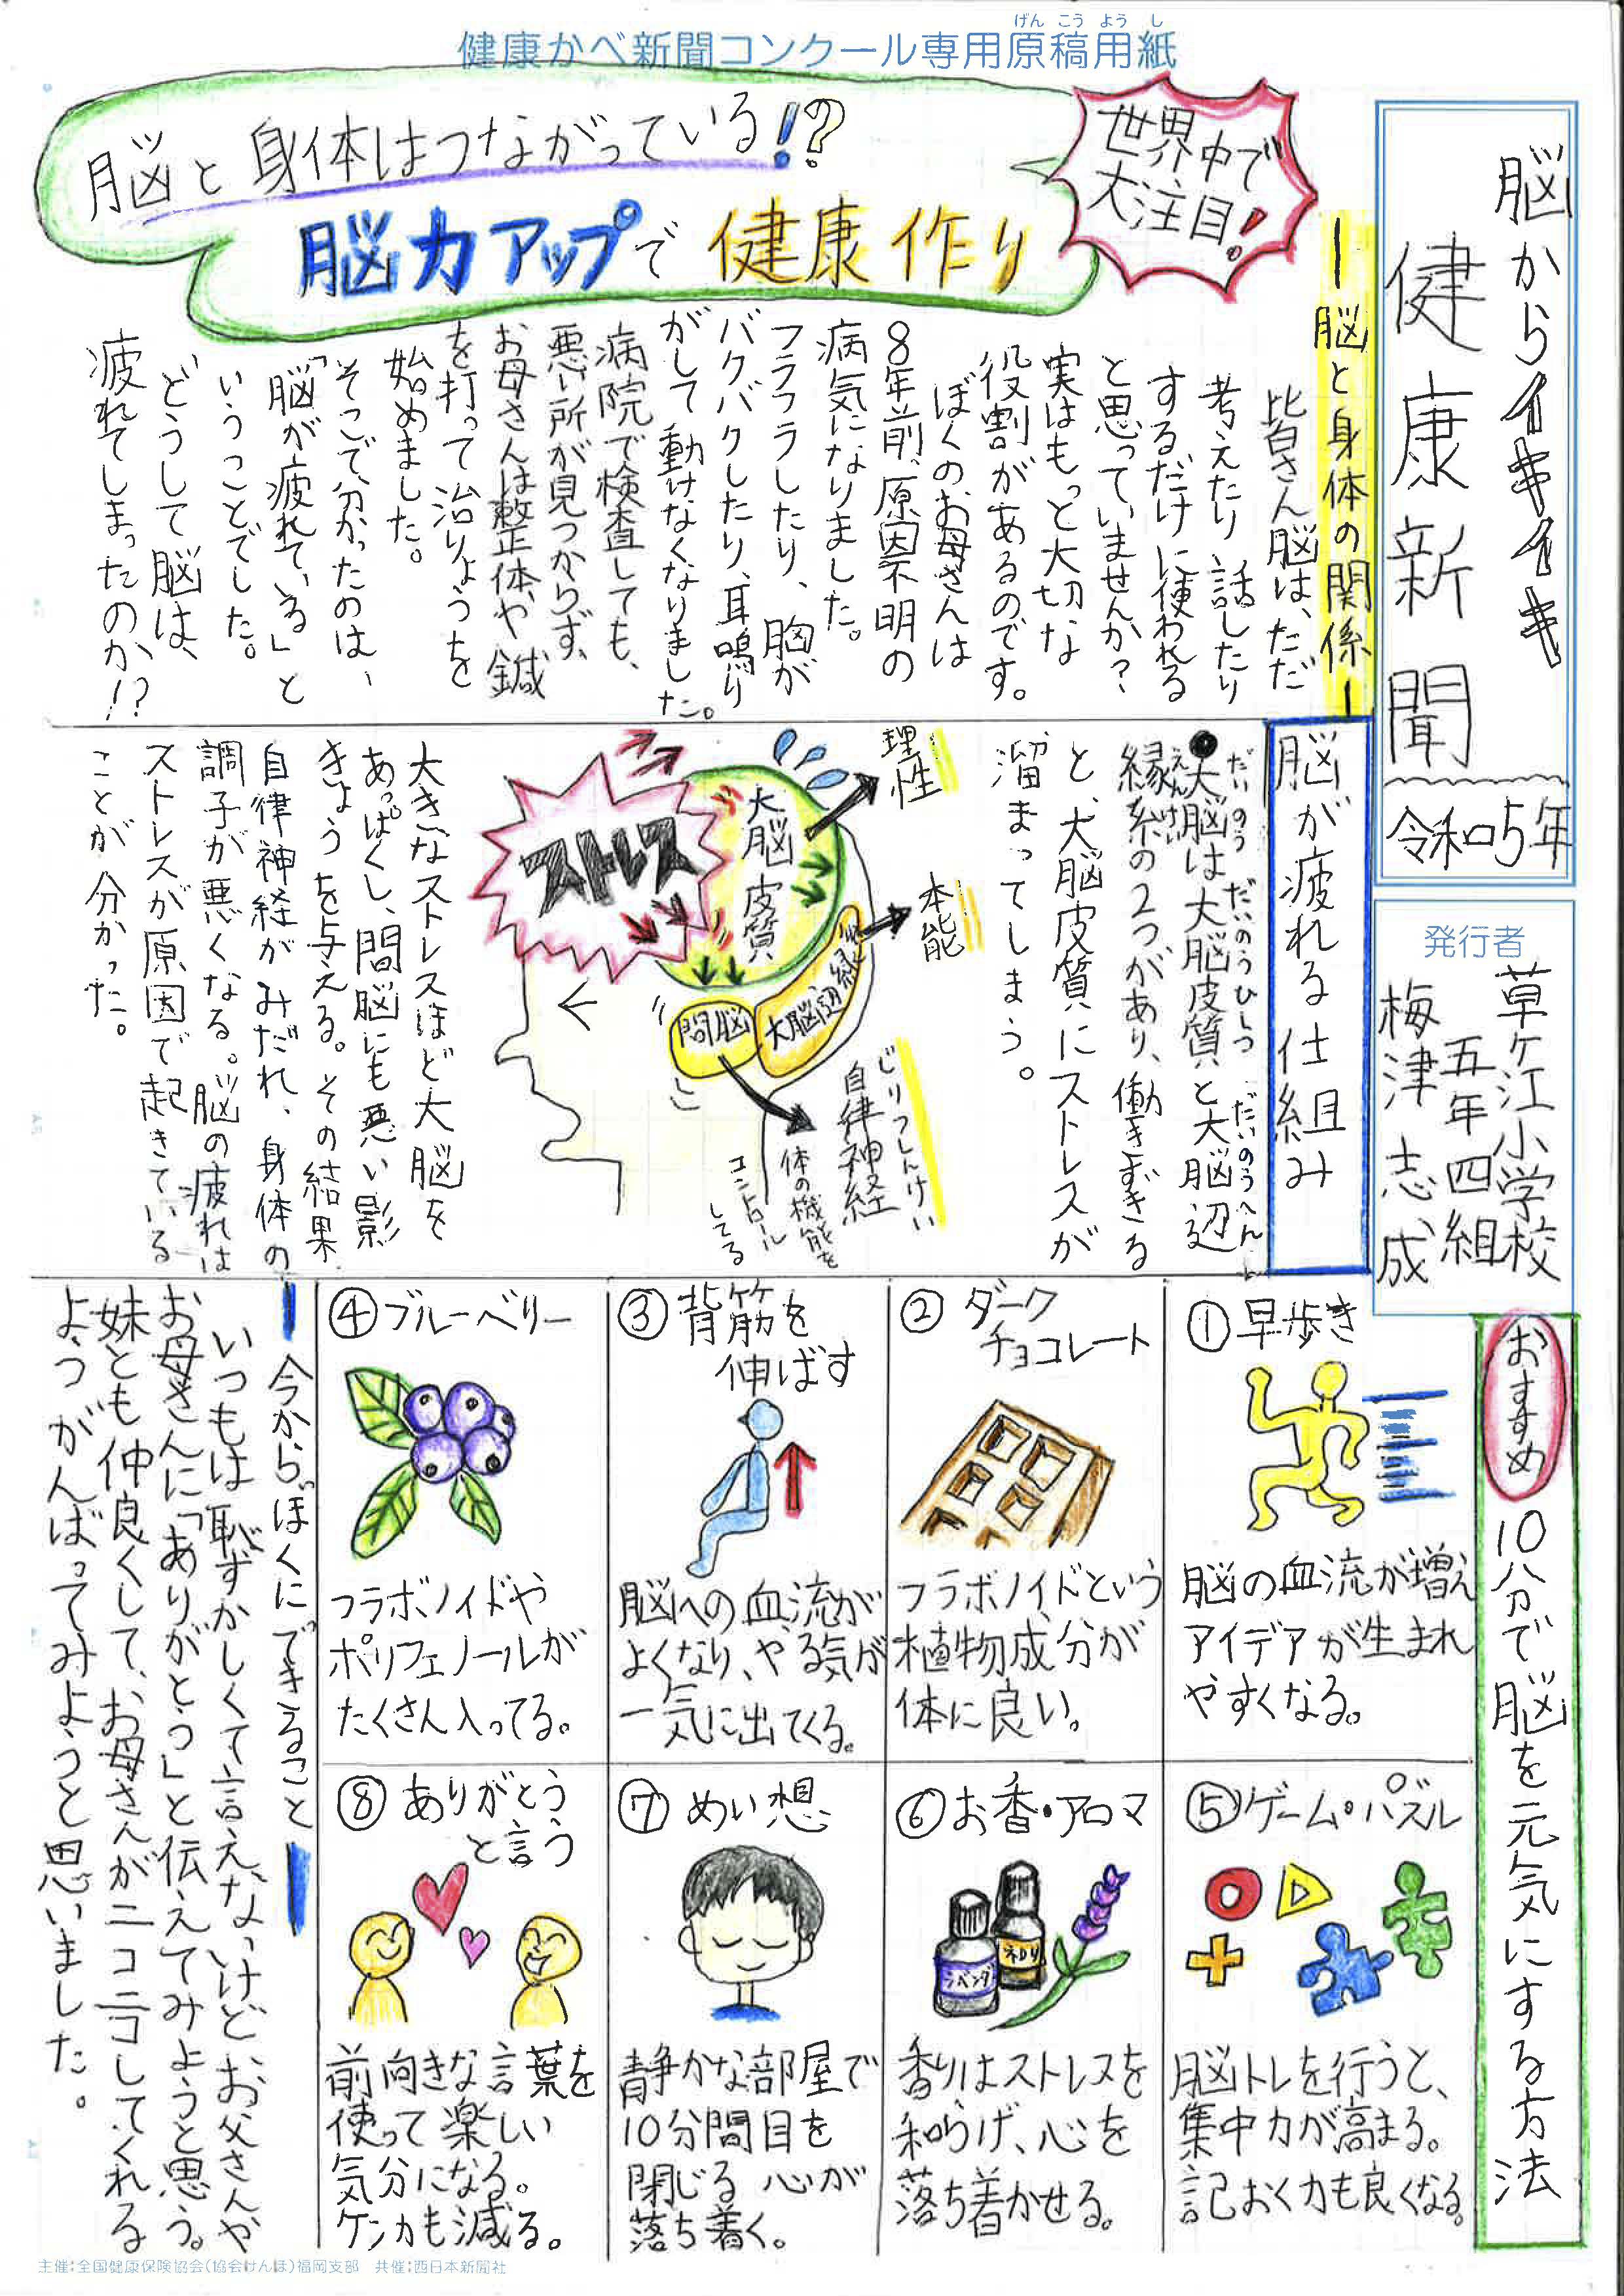 げんこうようし
健康かべ新聞コンクール専用原稿用紙
脳からイキイキ
健康新聞
令和5年
発行者
草ヶ江小学校
五年四組
梅津志成
世界中で
大注目!
脳と身体はつながっている!?
脳力アップで健康作り
ー脳と身体の関係ー
皆さん脳は、ただ
考えたり話したり
するだけに使われる
と思っていませんか?
実はもっと大切な
役割があるのです。
ぼくのお母さんは
8年前、原因不明の
病気になりました。
フラフラしたり、胸が
バクバクしたり、耳鳴り
がして動けなくなりました。
病院で検査しても、
悪い所が見つからず、
お母さんは整体や鍼
を打って治りょうを
始めました。
そこで、分かったのは、
「脳が疲れている」と
いうことでした。
どうして脳は、
疲れてしまったのか!?
脳が疲れる仕組み
だいのう だいのうひしつ だいのうへん
●大脳は大脳皮質と大脳辺
えんけい
縁系の2つがあり、働きすぎる
と、大脳皮質にストレスが
溜まってしまう。
理性
本能
ストレス
大脳皮質
間脳
大脳辺縁系
じりつしんけい
自律神経
体の機能を
コントロール
してる
大きなストレスほど大脳を
あっぱくし、間脳にも悪い影
きょうを与える。その結果、
自律神経がみだれ、身体の
調子が悪くなる。脳の疲れは
ストレスが原因で起きている
ことが分かった。
おすすめ 10分で脳を元気にする方法
①早歩き
脳の血流が増え
アイデアが生まれ
やすくなる。
②ダーク
チョコレート
フラボノイドという
植物成分が
体に良い。
③背筋を
伸ばす
脳への血流が
よくなり、やる気が
一気に出てくる。
④ブルーベリー
フラボノイドや
ポリフェノールが
たくさん入ってる。
⑤ゲーム・パズル
脳トレを行うと、
集中力が高まる。
記おく力も良くなる。
⑥お香・アロマ
ラベンダー
ネロリ
香りはストレスを
和らげ、心を
落ち着かせる。
⑦めい想
静かな部屋で
10分間目を
閉じる 心が
落ち着く。
⑧ありがとう
と言う
前向きな言葉を
使って楽しい
気分になる。
ケンカも減る。
ー今からぼくにできることー
いつもは恥ずかしくて言えないけどお父さんや
お母さんに「ありがとう」と伝えてみようと思う。
妹とも仲良くして、お母さんがニコニコしてくれる
ようがんばってみようと思いました。
主催：全国健康保険協会（協会けんぽ）福岡支部　共催：西日本新聞社